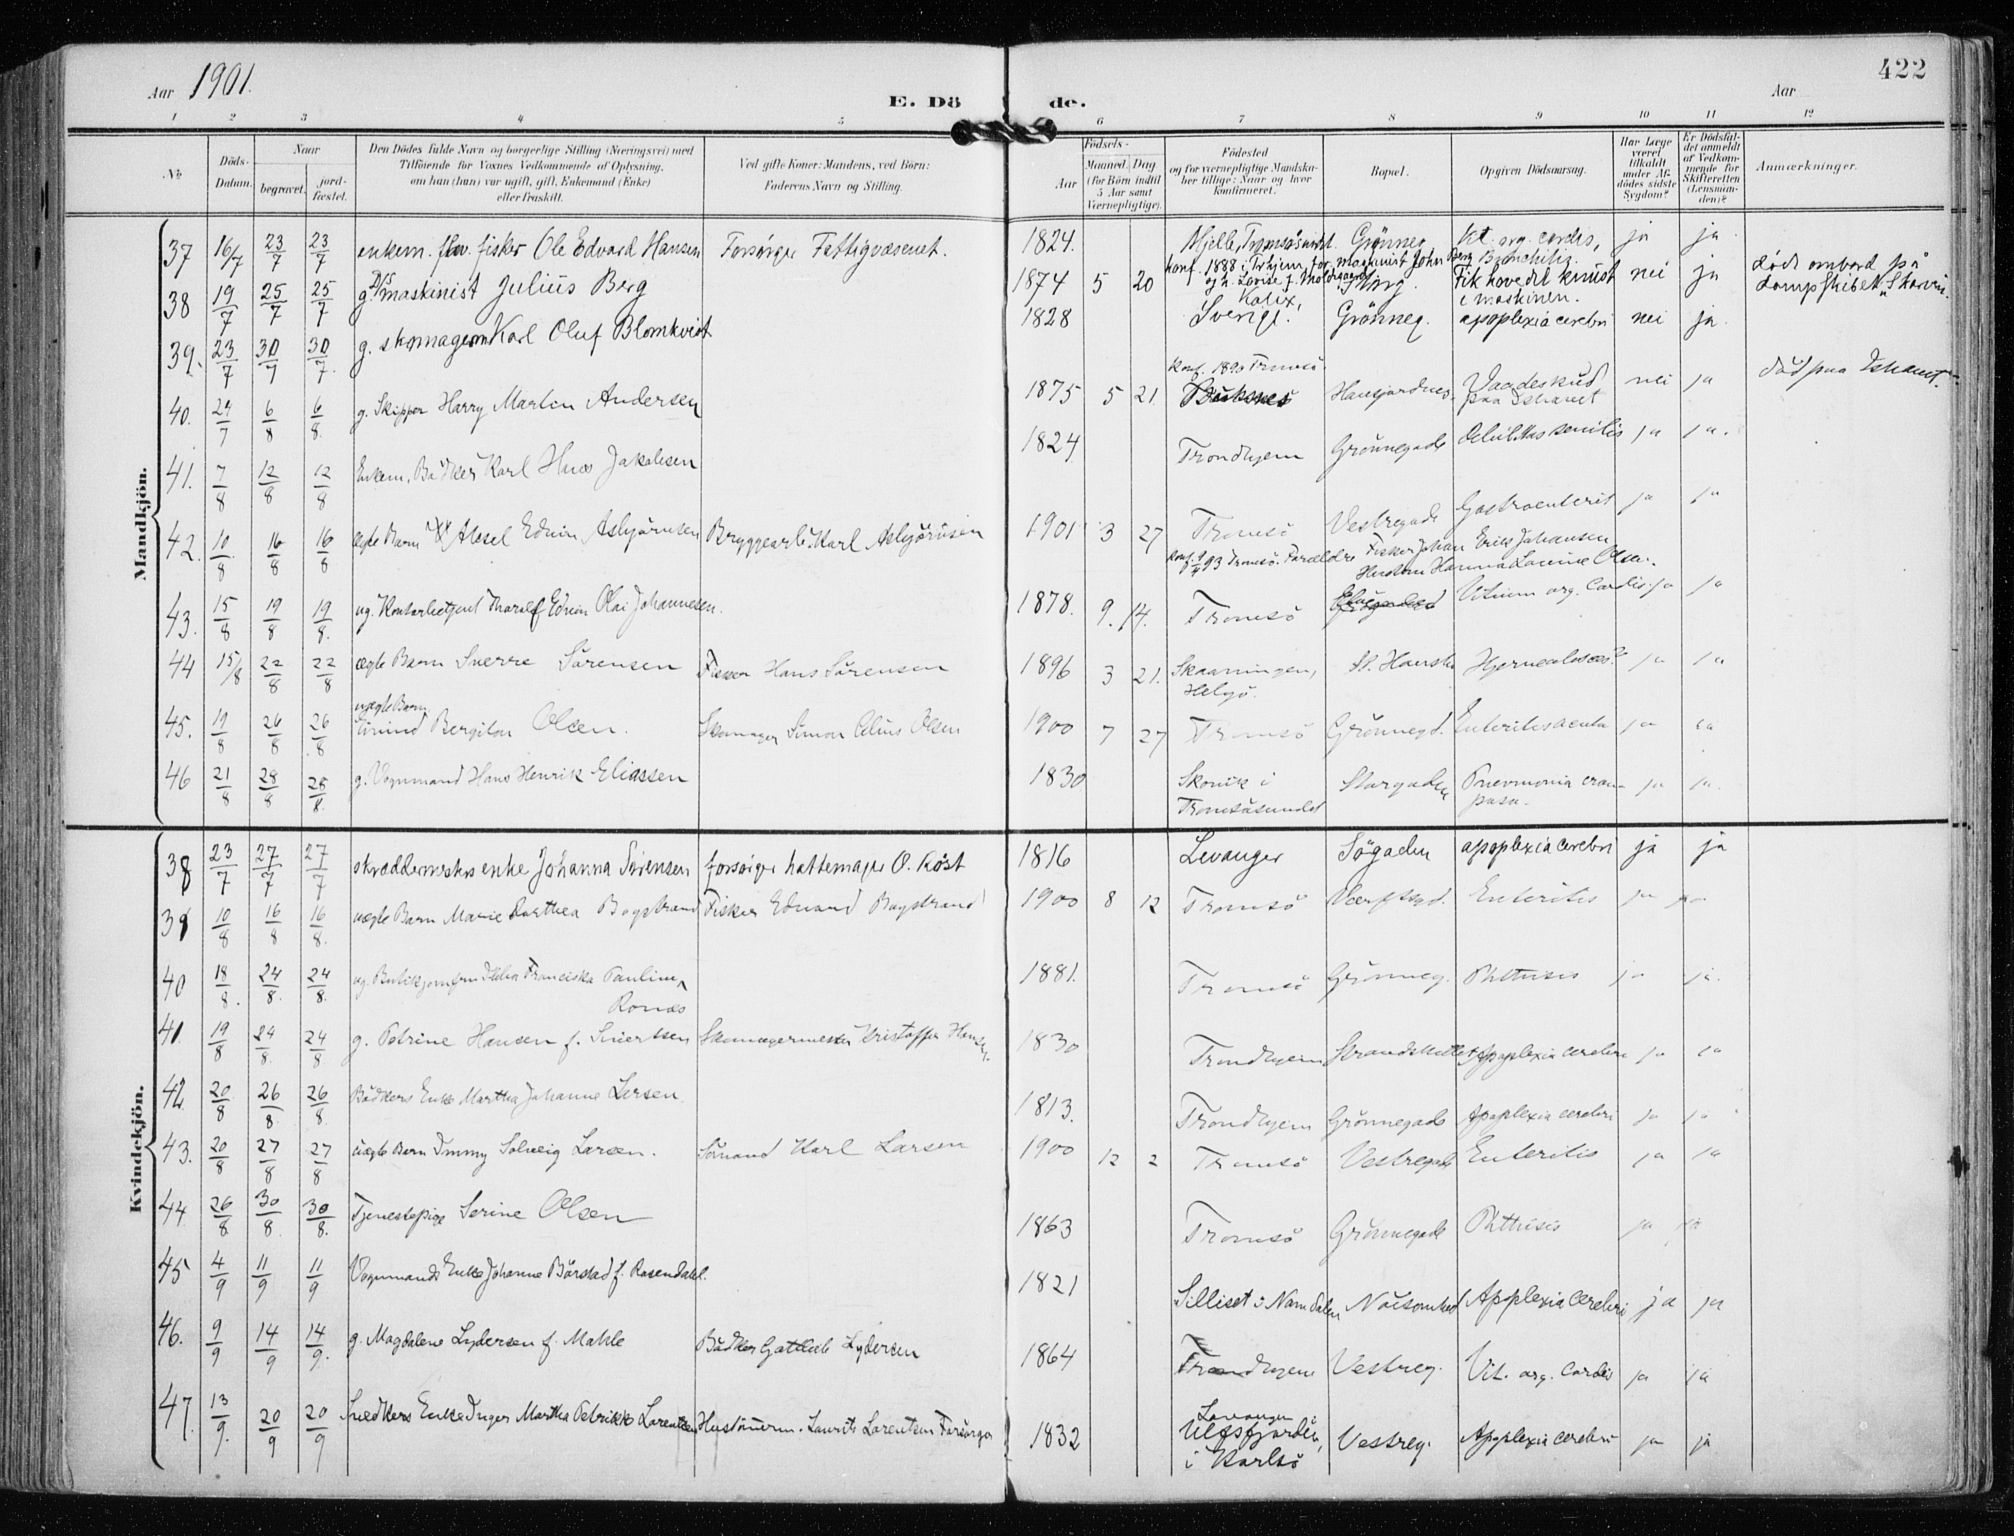 422
Aar 1901.
E. Dö de.
Aar
1 2 3 4 5 6 7 8 9 10 11 12
No
Döds-Datum.
Naar
begravet.
jord-fæstet.
Den Dödes fulde Navn og borgerlige Stilling (Næringsvei) med
Tilföiende for Voxnes Vedkommende af Oplysning,
om han (hun) var ugift, gift, Enkemand (Enke)
eller fraskilt.
Ved gifte Koner: Mandens, ved Börn:
Faderens Navn og Stilling.
Födsels-
Aar
Maaned. Dag
(for Börn indtil
5 Aar samt
Værnepligtige).
Födested
og for værnepligtige Mandska-
ber tillige: Naar og hvor
konfirmeret.
Bopæl.
Opgiven Dödsaarsag.
Har Læge
været
tilkaldt
under Af-
dödes sidste
Sygdom?
Er Dödsfal-
det anmeldt
af Vedkom-
mende for
Skifteretten
(Lensman-
den)?
Anmærkninger.
Mandkjön.
37 16/7 23/7 23/7 enkem. fhv. fisker Ole Edvard Hansen Forsörges Fattigvæsenet. 1824. Grönneg. Vit. org. cordis, Bronchitis. ja ja
konf. 1888 i Trhjem, for. maskinist John Berg
38 19/7 25/7 25/7 g. D/S maskinist Julius Berg 1874 5 20 Fik hovedet knust i maskinen. nei ja döde ombord på dampskibet
39. 23/7 30/7 30/7 g. skomagerm Karl Oluf Blomkvist 1828 Kalix, Sverige. Grönneg. apoplexia cerebri nei ja
konf. 1890 Tromsö.
40. 24/7 6/8 6/8 g. Skipper Harry Martin Andersen 1875 5 21 Vaadeskud paa Ishavet nei ja död paa Ishavet.
41. 7/8 12/8 12/8 Enkem. Bödker Karl Jakobsen 1824 Trondhjem Grönnegade senilis ja ja.
42. 10/8 16/8 16/8 ægte Barn Edvin Asbjörnsen Bryggearb. Karl Asbjörnsen 1901 3 27 Tromsö Vestregade Gastroenterit ja ja
93 Tromsö. Forældre Fisker Johan Erik Johansen
Hustru Hanna Lovine Olsen.
43. 15/8 19/8 19/8. ug. Kontorbetjent Tharalf Edvin Olai Johannesen. 1878. 9. 14. Tromsö Vitium org. cordis. ja ja
44 15/8 22/8 22/8 ægte Barn Sverre Sörensen Fisker Hans Sörensen 1896 3 21. Skaaningen, Helgö. ja ja
uægte Barn
45. 19/8 26/8 26/8 Eivind Bergiton Olsen. Skomager Simon Olsen 1900 7 27 Tromsö Grönnegd. Enteritis acuta ja ja
46 21/8 28/8 28/8. g. Vognmand Hans Henrik Eliassen 1830 i Tromsösundet Storgaden Pneumonia crouposa. ja ja.
Kvindekjön.
38 23/7 27/7 27/7 skræddermesters enke Johanna Sörensen forsörger hattemager O. Röst 1816 Levanger Sögaden apoplexia cerebri ja ja
39 10/8 16/8 16/8. uægte Barn Marie Dorthea Bogstrand Fisker Edvard Bogstrand 1900 8 12 Tromsö Værftsgd. Enteritis ja ja
40 18/8. 24/8. 24/8. ug. Butikjomfru Franciska Pauline Ronæs 1881. Tromsö Grönneg. Phthisis ja ja.
41. 19/8 24/8. 24/8 g. Petrine Hansen f. Sivertsen Skomagermester Kristoffer Hansen. 1830 Trondhjem Apoplexia cerebri ja ja
42. 20/8 26/8. 26/8. Bödkers Enke Martha Johanne Larsen. 1813. Trondhjem Grönnegade Apoplexia cerebri ja ja
43. 20/8 27/8 27/8 uægte Barn Solveig Larsen. Sömand Karl Larsen 1900 12 2 Tromsö Vestregade Enteritis ja ja
44. 26/8. 30/8. 30/8. Tjenestepige Serine Olsen 1863 Tromsö Grönnegade Phthisis ja ja
45 4/9 11/9 11/9 Vognmands Enke Johanne Börstad f. Rosendahl. 1821 i Namdalen Apoplexia cerebri ja ja
46. 9/9 14/9 14/9. g. Magdalene Lydersen f. Mahle Bödker Gottlieb Lydersen 1864 Trondhjem Vestreg. Vit. org. cordis ja ja
47. 13/9. 20/9 20/9 Snedkers Enke Inger Martha Petrikke Lorentzen Laurits Lorentsen Forsörger 1832 Levanger Ulfsfjorden, i Karlsö Vestreg. Apoplexia cerebri ja ja